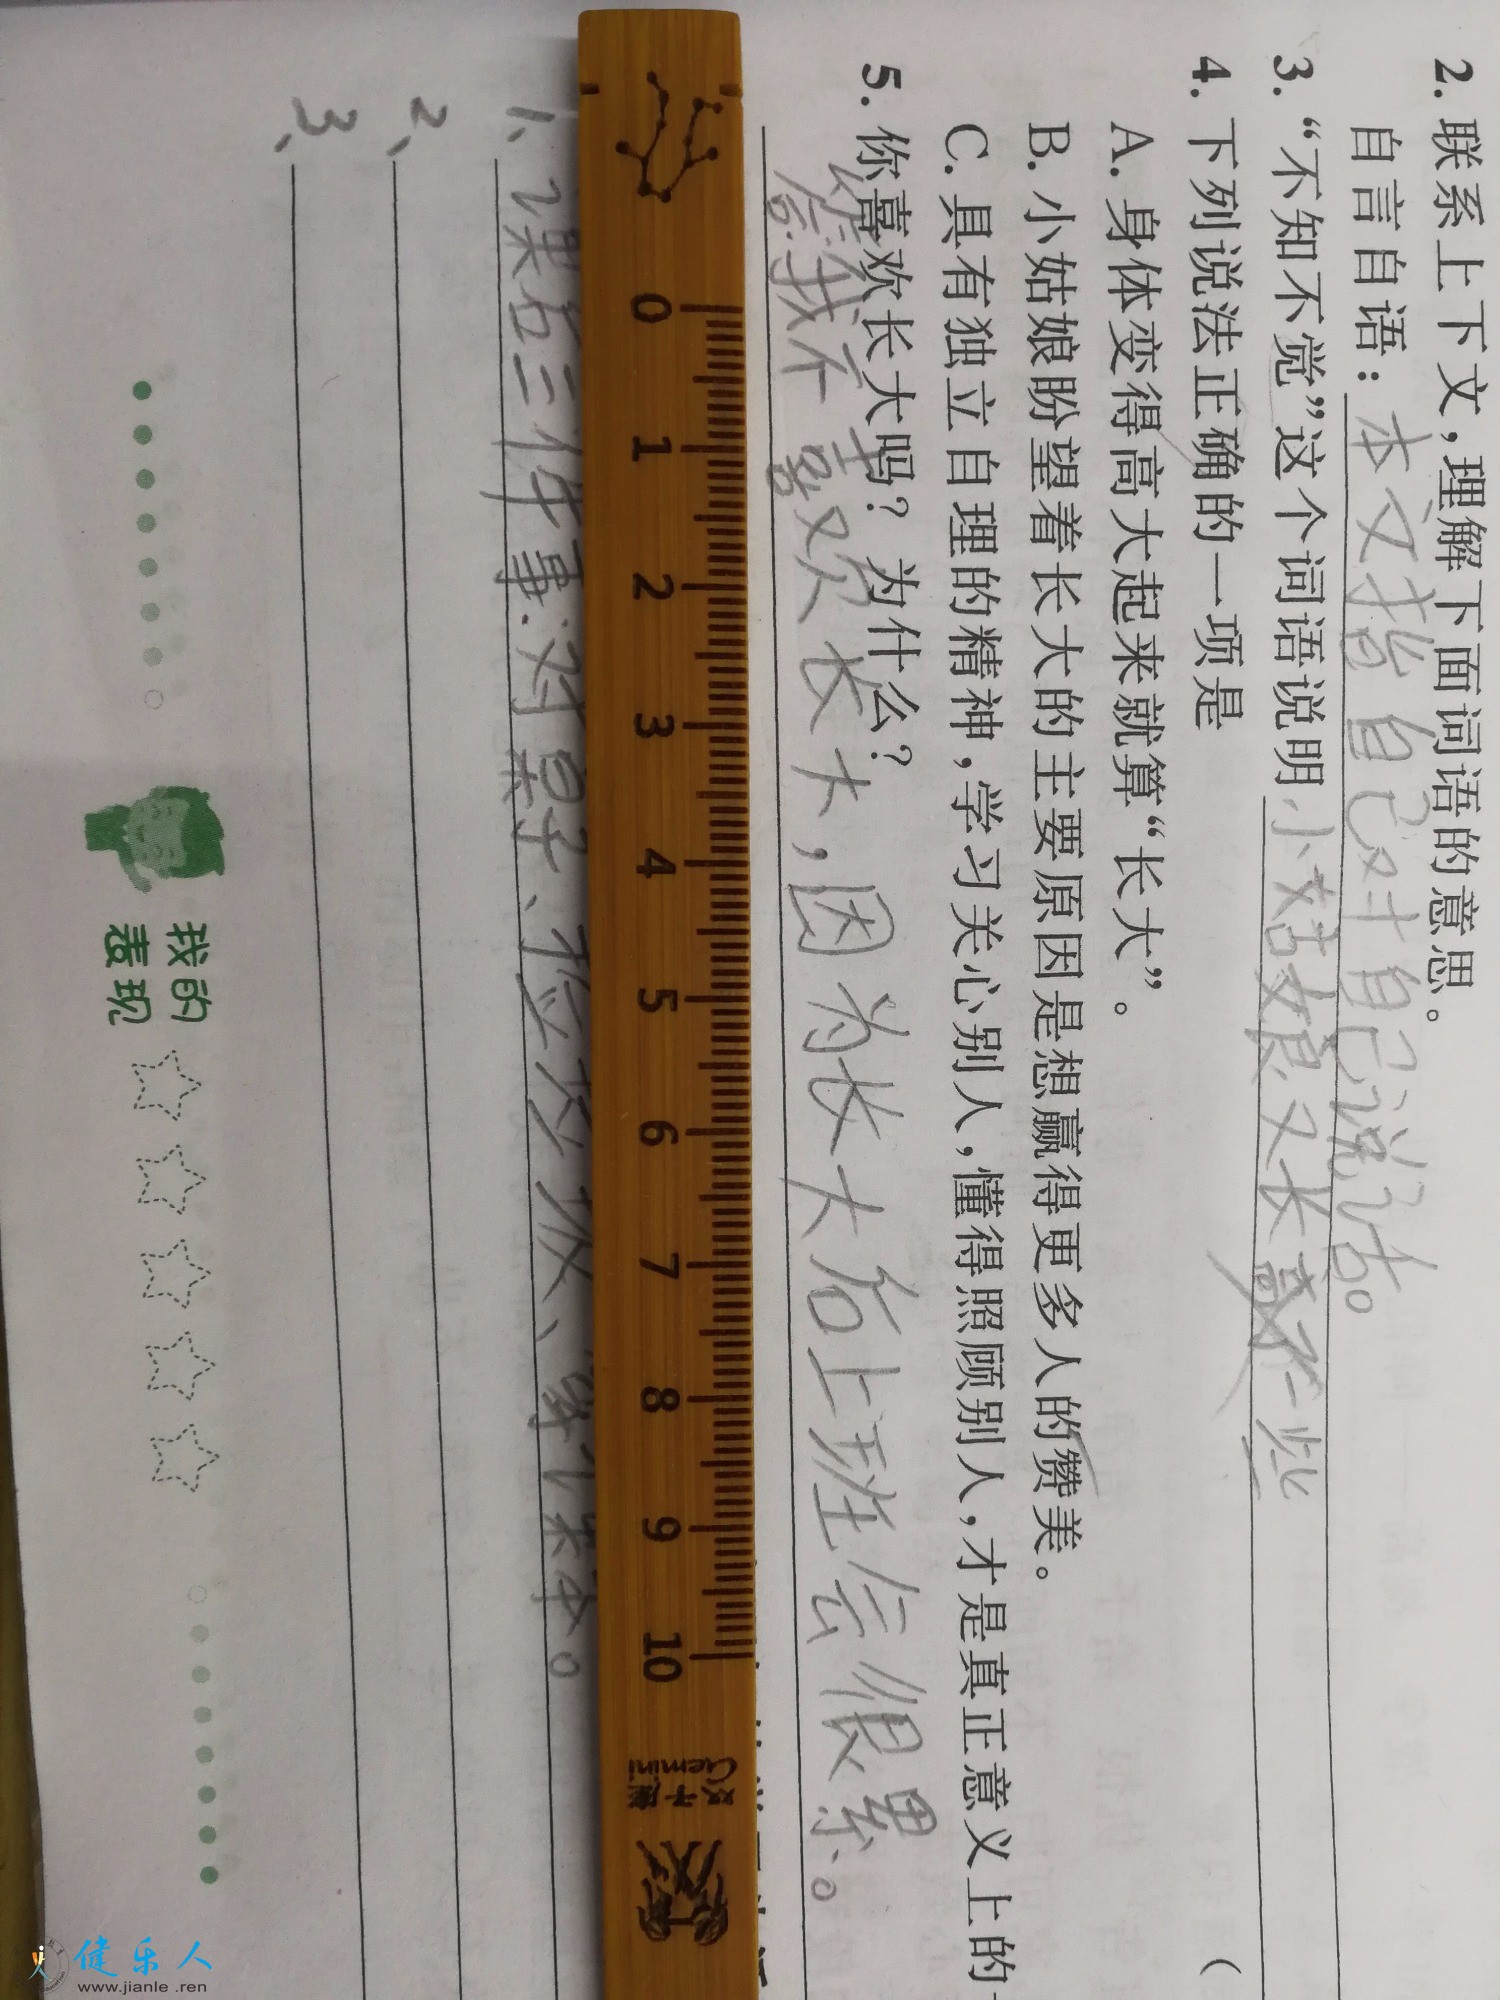 2. 联系上下文，理解下面词语的意思。
自言自语：本文指自己对自己说话。
3. “不知不觉”这个词语说明小姑娘又长 一些
4. 下列说法正确的一项是 （
A. 身体变得高大起来就算“长大”。
B. 小姑娘盼望着长大的主要原因是想赢得更多人的赞美。
C. 具有独立自理的精神，学习关心别人，懂得照顾别人，才是真正意义上的
5. 你喜欢长大吗？为什么？
答：我不喜欢长大，因为长大后上班会很累。
0 1 2 3 4 5 6 7 8 9 10
双子座
Gemini
1、课后三件事：对桌子、捡垃圾、
2、
3、
我的
表现
健乐人
www.jianle.ren